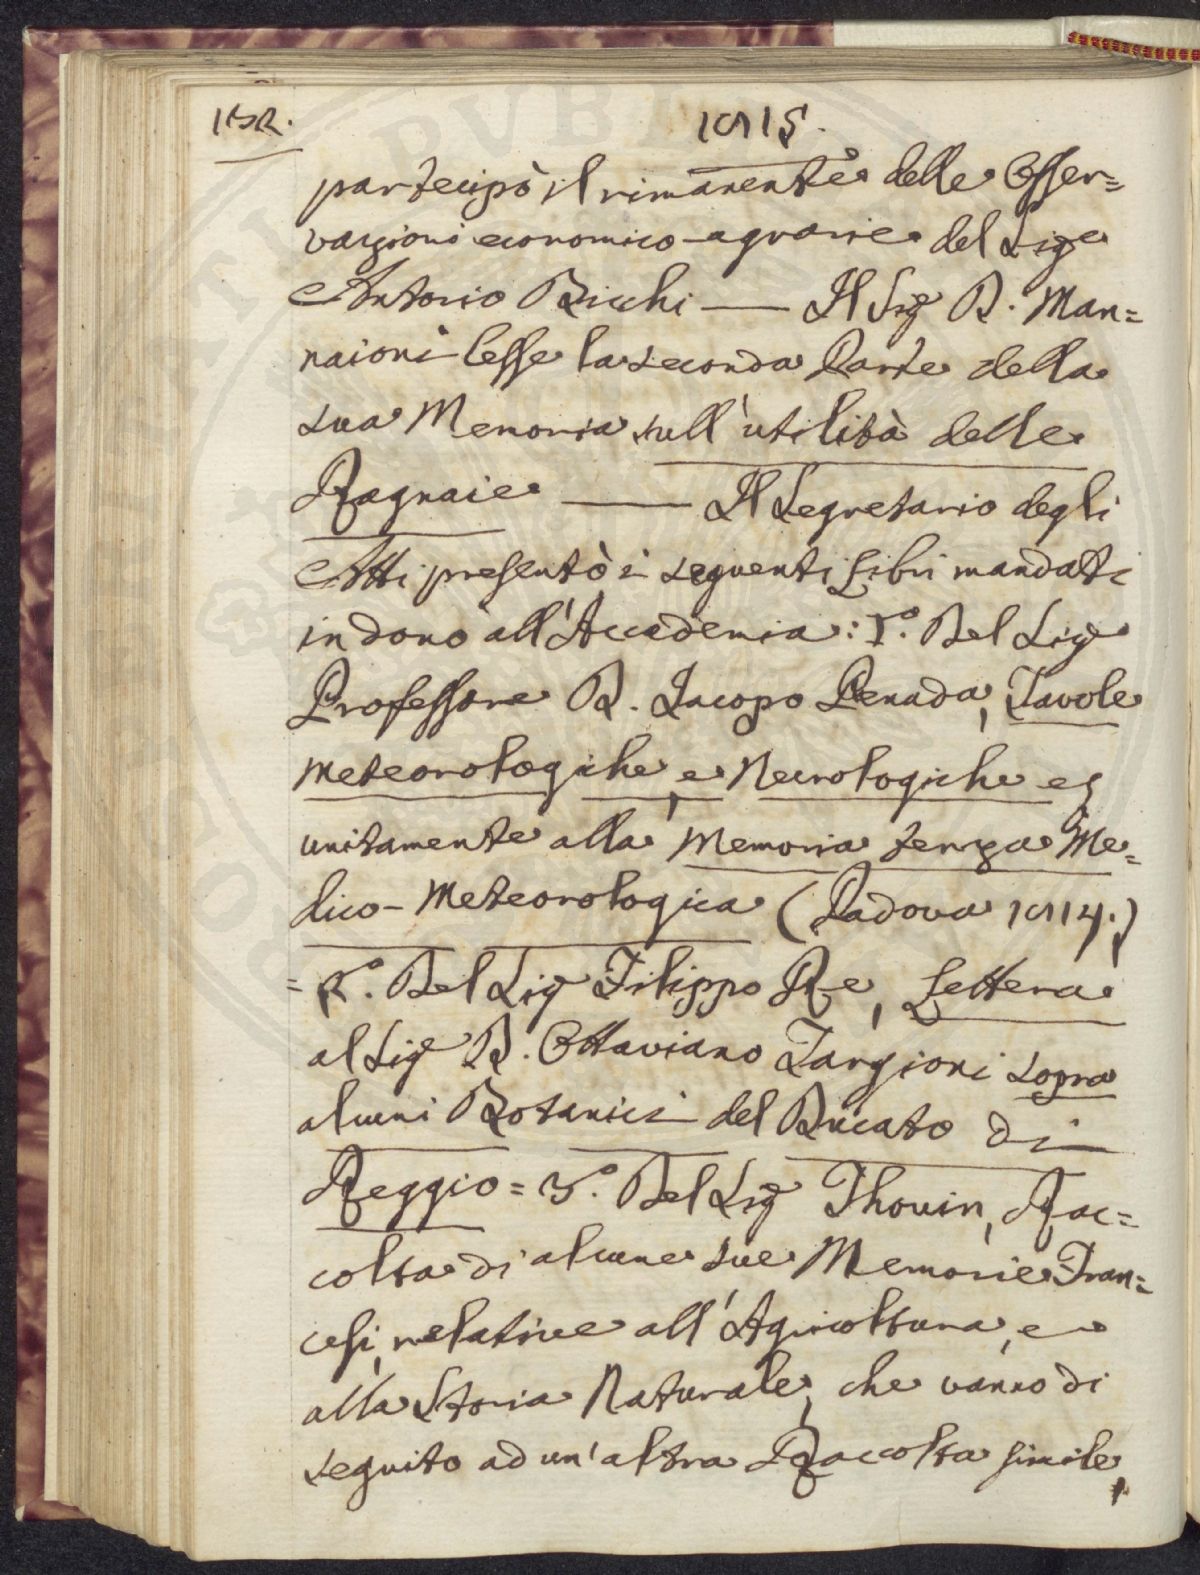 152.
1815.
partecipò il rimanente delle Osser=
vazioni economico-agrarie del Sig.e
Antonio Bicchi — Il Sig.e D. Man=
naioni lesse la seconda Parte della
sua Memoria sull'utilità delle
Ragnaie — Il Segretario degli
Atti presentò i seguenti Libri mandati
in dono all'Accademia: 1.° Del Sig.e
Professore D. Jacopo Penada, Tavole
Meteorologiche, e Necrologiche es
unitamente alla Memoria terza Me=
dico-Meteorologica (Padova 1814.)
= 2.° Del Sig.e Filippo Re, Lettera
al Sig.e D. Ottaviano Targioni sopra
alcuni Botanici del Ducato di
Reggio = 3.° Del Sig.e Thouin, Rac=
colta di alcune sue Memorie Fran=
cesi, relative all'Agricoltura, e
alla Storia Naturale, che vanno di
seguito ad un'altra Raccolta simile,